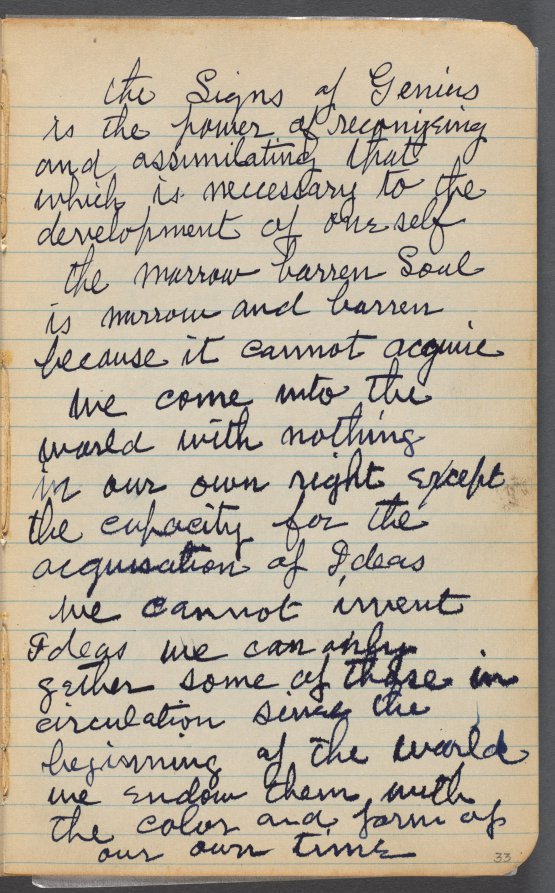 the Signs of Genius
is the power of reconizeing
and assimilating that
which is neccessary to the
development of oneself
the narrow barren Soul
is narrow and barren
because it cannot acquire
We come into the
world with nothing
in our own right except
the capacity for the
acquisation of Ideas
We cannot invent
Ideas we can only
gether some of those in
circulation since the
beginning of the world
we endow them with
the color and form of
our own time
33